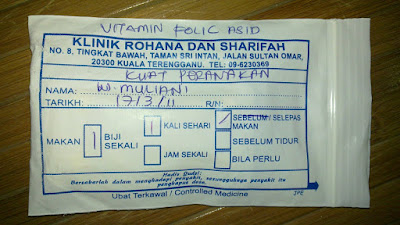 VITAMIN FOLIC ASID
KLINIK ROHANA DAN SHARIFAH
NO. 8, TINGKAT BAWAH, TAMAN SRI INTAN, JALAN SULTAN OMAR,
20300 KUALA TERENGGANU. TEL: 09-6230369
KUAT PERANAKAN
NAMA: W. MULIANI
TARIKH: 17/3/11 R/N:
MAKAN 1 BIJI SEKALI
1 KALI SEHARI
JAM SEKALI
/ SEBELUM / SELEPAS MAKAN
SEBELUM TIDUR
BILA PERLU
Hadis Qudsi:
Bersabarlah dalam menghadapi penyakit, sesungguhnya penyakit itu
penghapus dosa.
Ubat Terkawal / Controlled Medicine